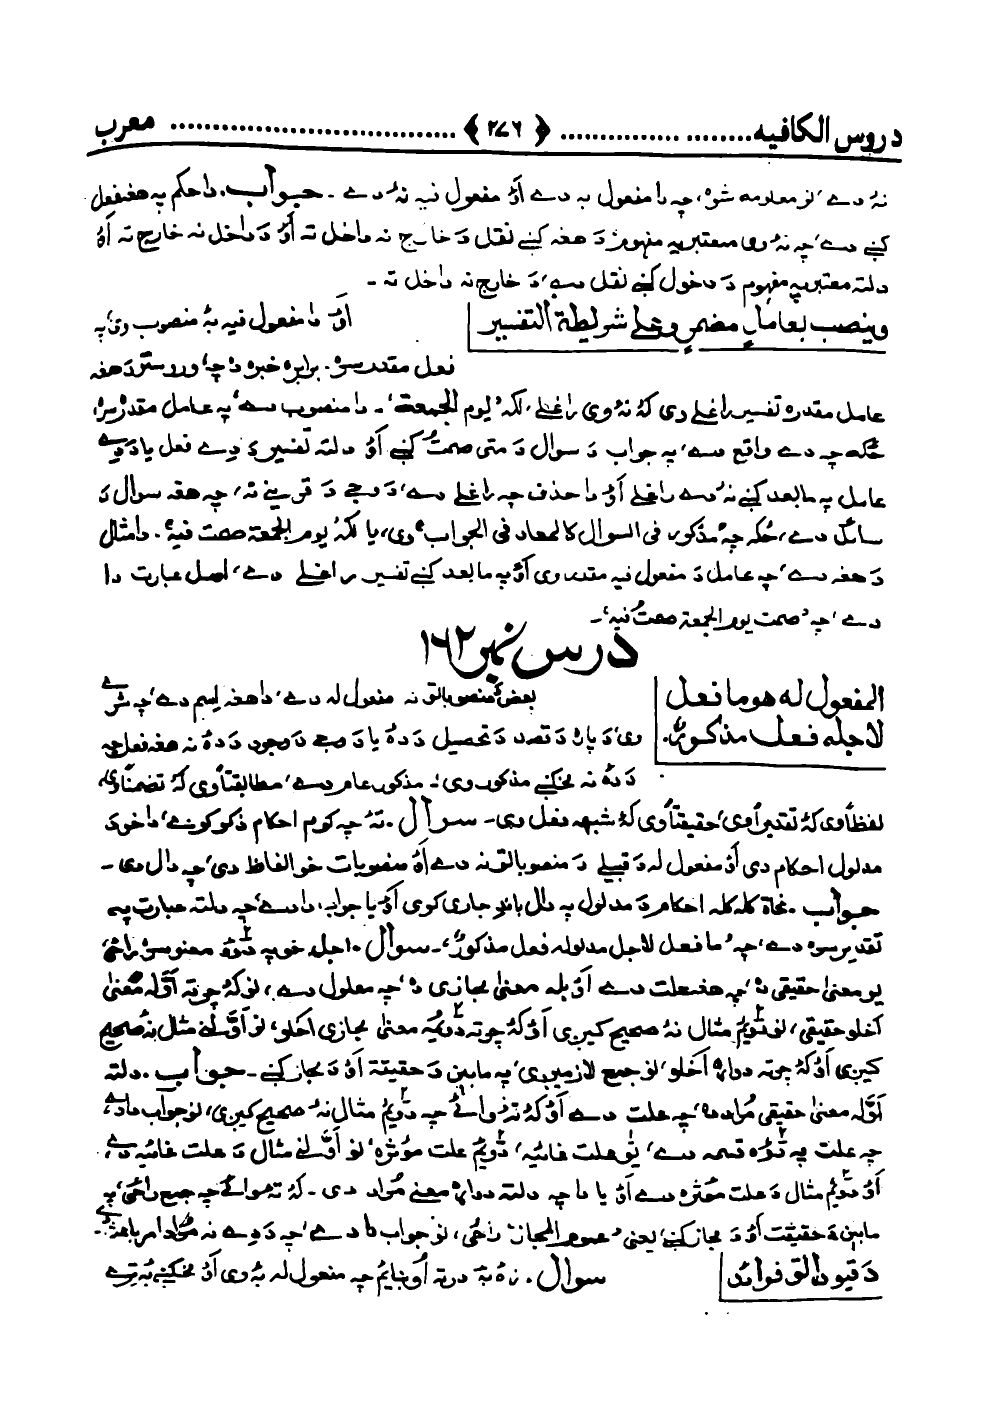 دروس الکافیه ........ ﴿ ۲۷۶ ﴾ ........ معرب
نۀ دے، نو معلومه شوه، چه دا مفعول به دے اَؤ مفعول فیه نۀ دے ۔ جواب. دا حکم په هغه فعل
کښے دے، چه نۀ وی معتبر په مفهوم دَ هغه کښے نقل دَ خارج نه داخل ته اَؤ دَ داخل نه خارج ته اَؤ
دلته معتبر په مفهوم دَ دخول کښے نقل دے، دَ خارج نه داخل ته ۔
وینصب بعامل مضمر وعلی شریطة التفسیر
اَؤ دا مفعول فیه به منصوب وی، په
فعل مقدر سره. برابره خبره ده چه، وروستو دَ هغه
عامل مقدره تفسیر راغلے وی کۀ نۀ وی راغلے، لکه "یوم الجمعة" ۔ دا منصوب دے، په عامل مقدر سره
ځکه چه دے واقع دے، په جواب دَ سوال دَ متی صمت کښے اَؤ دلته تفسیر دَ دے فعل یا دَ دے
عامل په مابعد کښے نۀ دے راغلے اَؤ دا حذف چه راغلے دے، دَ وجے دَ قرینے نه، چه هغه سوال دَ
سائل دے، ځکه چه "مذکور فی السوال کالمعاد فی الجواب" وی، یا لکه یوم الجمعة صمت فیه. دا مثال
دَ هغه دے، چه عامل دَ مفعول فیه مقدر وی اَؤ په مابعد کښے تفسیر راغلے دے، اصل عبارت دا
دے، چه "صمت یوم الجمعة صمت فیه"۔
درس نمبر ۱۶۲
المفعول له هو ما فعل
لاجله فعل مذکور.
بعض دَ منصوباتو نه مفعول له دے، دا هغه اسم دے، چه شوے
وی، دَ پاره دَ قصد دَ تحصیل دَ دۀ یا دَ وجے دَ وجود دَ دۀ نه هغه فعل چه
دَ دۀ نه مخکښے مذکور وی، مذکور عام دے، مطابقتاً وی کۀ تضمناً وی،
لفظاً وی کۀ تقدیراً وی، حقیقتاً وی کۀ شبهه فعل وی ۔ سوال. تۀ چه کوم احکام ذکر کوے، دا خو دَ
مدلول احکام دی اَؤ مفعول له دَ قبیلے دَ منصوباتو نه دے اَؤ منصوبات خو الفاظ دی، چه دال دی ۔
جواب. نحاة کله کله احکام دَ مدلول په دال باندِ جاری کوی اَؤ یا جواب دا دے، چه دلته عبارت په
تقدیر سره دے، چه "ما فعل لاجل مدلوله فعل مذکور" ۔ سوال. اجل خو په دوه معنو سره راځی،
یو معنیٰ حقیقی ده، چه هغه علت دے اَؤ بله معنیٰ مجازی ده، چه معلول دے، نو کۀ چرته اَوّله معنیٰ
اخلو حقیقی، نو دویم مثال نۀ صحیح کیږی اَؤ کۀ چرته دویمه معنیٰ مجازی اخلو، نو اَوّلنے مثال نۀ صحیح
کیږی اَؤ کۀ چرته دواړه اَخلو، نو جمع لازمیږی، په مابین دَ حقیقة اَؤ دَ مجاز کښے ۔ جواب. دلته
اَوّله معنیٰ حقیقی مُراد ده، چه علت دے اَؤ کۀ تۀ وائے چه دویم مثال نۀ صحیح کیږی، نو جواب دا دے،
چه علت په دوه قسمه دے، یو علت غائیه، دویم علت مؤثره، نو اَوّلنے مثال دَ علت غائیه دے،
اَؤ دویم مثال دَ علت مؤثره دے اَؤ یا دا چه دلته دواړه معنے مُراد دی ۔ کۀ تۀ وائے چه جمع راځی، په
مابین دَ حقیقت اَؤ دَ مجاز کښے، یعنی "عموم المجاز" راځی، نو جواب دا دے، چه دَ دے نه مُراد امر باعث دے۔
دَ قیوداتو فوائد
سوال. زۀ به درته اُوښایم چه مفعول له به وی اَؤ مخکښے به ترے